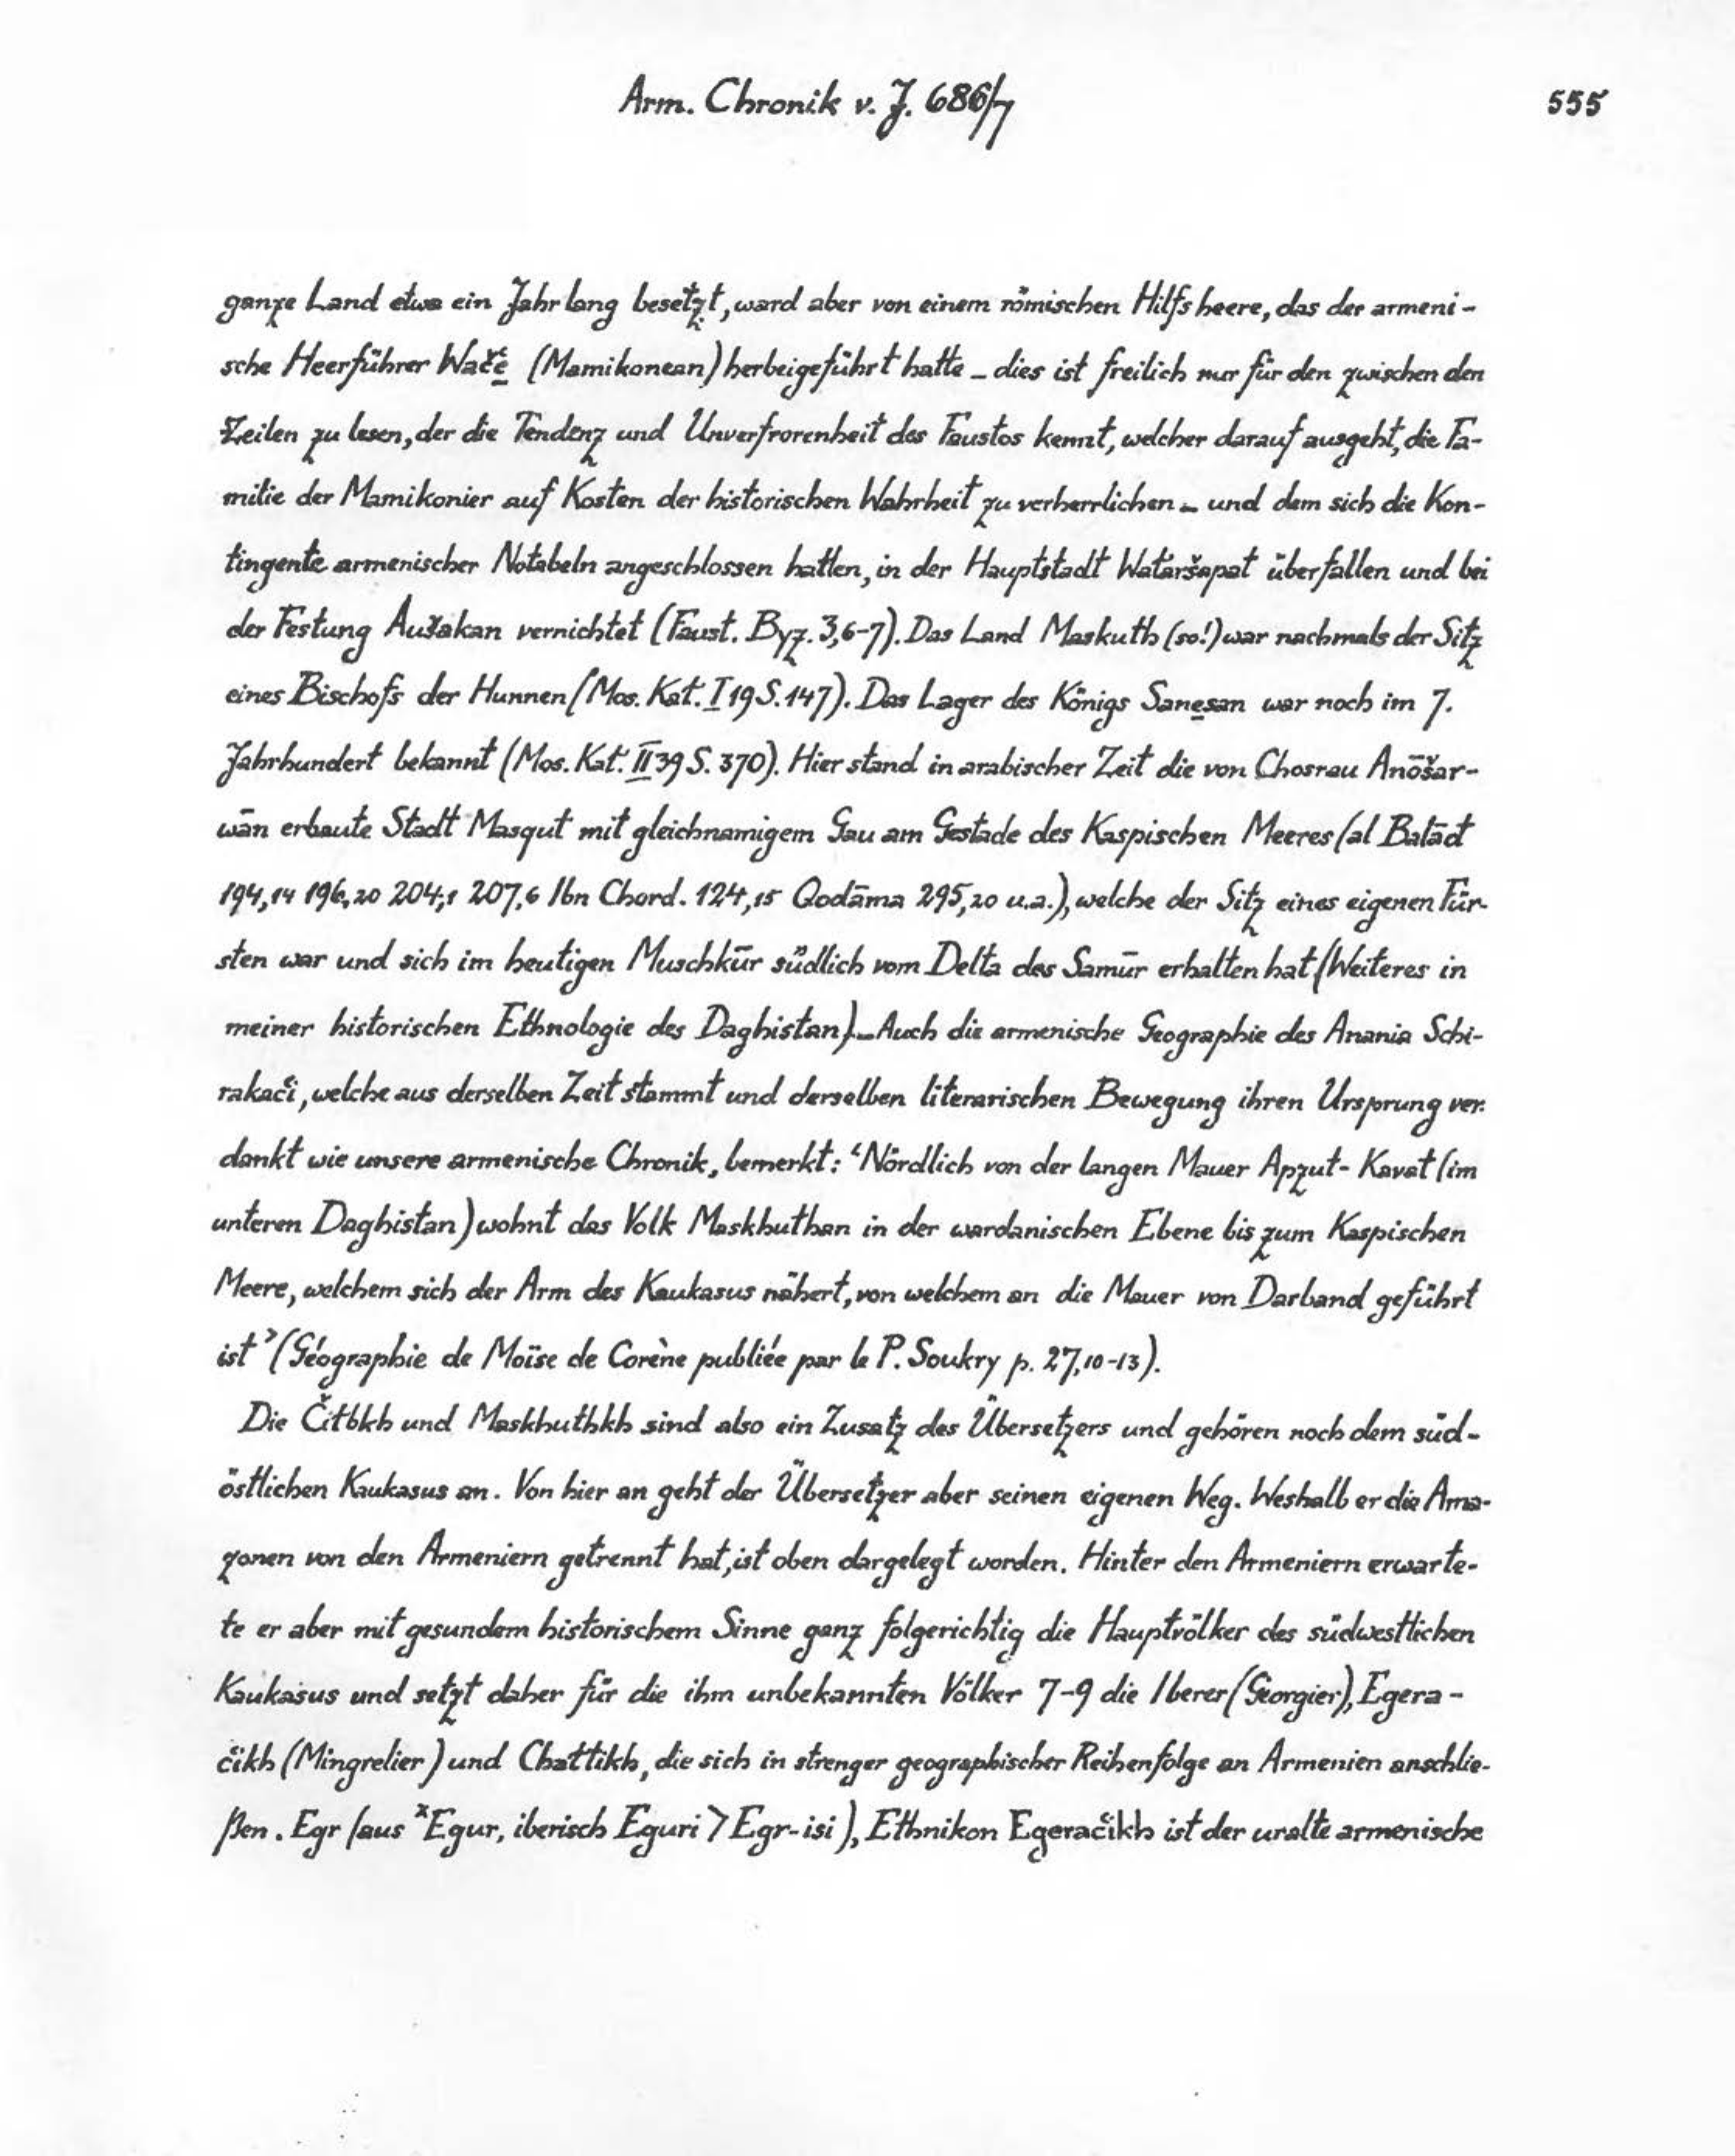 Arm. Chronik v. J. 686/7
555
ganze Land etwa ein Jahr lang besetzt, ward aber von einem römischen Hilfsheere, das der armeni-
sche Heerführer Wač̣ẹ (Mamikonean) herbeigeführt hatte – dies ist freilich nur für den zwischen den
Zeilen zu lesen, der die Tendenz und Unverfrorenheit des Faustos kennt, welcher darauf ausgeht, die Fa-
milie der Mamikonier auf Kosten der historischen Wahrheit zu verherrlichen – und dem sich die Kon-
tingente armenischer Notabeln angeschlossen hatten, in der Hauptstadt Wałaršapat überfallen und bei
der Festung Aušakan vernichtet (Faust. Byz. 3,6-7). Das Land Maskuth (so!) war nachmals der Sitz
eines Bischofs der Hunnen (Mos. Kał. I 19 S. 147). Das Lager des Königs Sanẹsan war noch im 7.
Jahrhundert bekannt (Mos. Kał. II 39 S. 370). Hier stand in arabischer Zeit die von Chosrau Anōšar-
wān erbaute Stadt Masqut mit gleichnamigem Gau am Gestade des Kaspischen Meeres (al Balād
194,14 196,20 204,1 207,6 Ibn Chord. 124,15 Qodāma 295,20 u.a.), welche der Sitz eines eigenen Für-
sten war und sich im heutigen Muschkūr südlich vom Delta des Samūr erhalten hat (Weiteres in
meiner historischen Ethnologie des Daghistan). – Auch die armenische Geographie des Anania Schi-
rakac̣i, welche aus derselben Zeit stammt und derselben literarischen Bewegung ihren Ursprung ver-
dankt wie unsere armenische Chronik, bemerkt: ‘Nördlich von der langen Mauer Apzut-Kavat (im
unteren Daghistan) wohnt das Volk Maskhuthan in der wardanischen Ebene bis zum Kaspischen
Meere, welchem sich der Arm des Kaukasus nähert, von welchem an die Mauer von Darband geführt
ist’ (Géographie de Moïse de Corène publiée par le P. Soukry p. 27,10-13).
Die Čitbkh und Maskhuthkh sind also ein Zusatz des Übersetzers und gehören noch dem süd-
östlichen Kaukasus an. Von hier an geht der Übersetzer aber seinen eigenen Weg. Weshalb er die Ama-
zonen von den Armeniern getrennt hat, ist oben dargelegt worden. Hinter den Armeniern erwarte-
te er aber mit gesundem historischem Sinne ganz folgerichtig die Hauptvölker des südwestlichen
Kaukasus und setzt daher für die ihm unbekannten Völker 7-9 die Iberer (Georgier), Egera-
c̣ikh (Mingrelier) und Chałtikh, die sich in strenger geographischer Reihenfolge an Armenien anschlie-
ßen. Egr (aus *Egur, iberisch Eguri > Egr-isi), Ethnikon Egerac̣ikh ist der uralte armenische